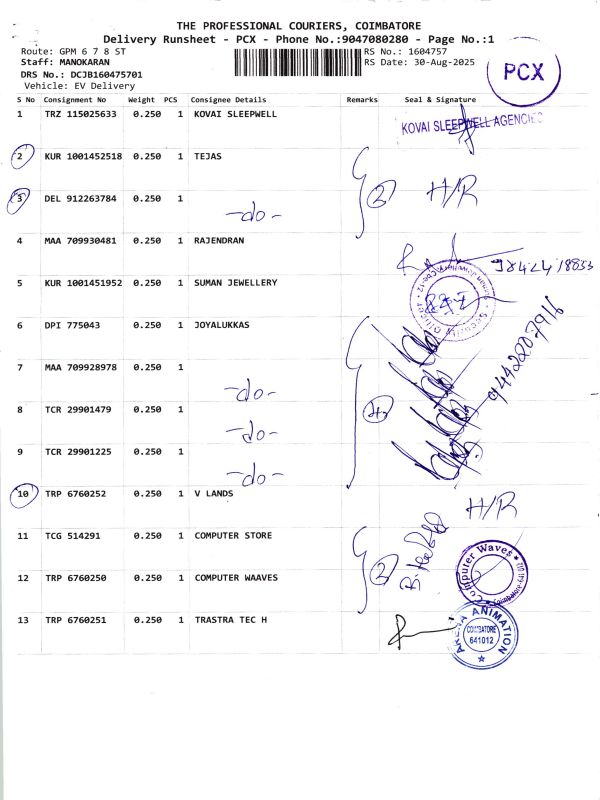 THE PROFESSIONAL COURIERS, COIMBATORE
Delivery Runsheet - PCX - Phone No.:9047080280 - Page No.:1
Route: GPM 6 7 8 ST
Staff: MANOKARAN
DRS No.: DCJB160475701
Vehicle: EV Delivery
RS No.: 1604757
RS Date: 30-Aug-2025
PCX
S No Consignment No Weight PCS Consignee Details Remarks Seal & Signature
1 TRZ 115025633 0.250 1 KOVAI SLEEPWELL
KOVAI SLEEPWELL AGENCIES
2 KUR 1001452518 0.250 1 TEJAS
2 H/R
3 DEL 912263784 0.250 1 -do-
4 MAA 709930481 0.250 1 RAJENDRAN
5 KUR 1001451952 0.250 1 SUMAN JEWELLERY
6 DPI 775043 0.250 1 JOYALUKKAS
7 MAA 709928978 0.250 1 -do-
8 TCR 29901479 0.250 1 -do-
9 TCR 29901225 0.250 1 -do-
10 TRP 6760252 0.250 1 V LANDS
H/R
11 TCG 514291 0.250 1 COMPUTER STORE
2
Computer Waves
12 TRP 6760250 0.250 1 COMPUTER WAAVES
13 TRP 6760251 0.250 1 TRASTRA TEC H
ARENA ANIMATION
COIMBATORE
641012